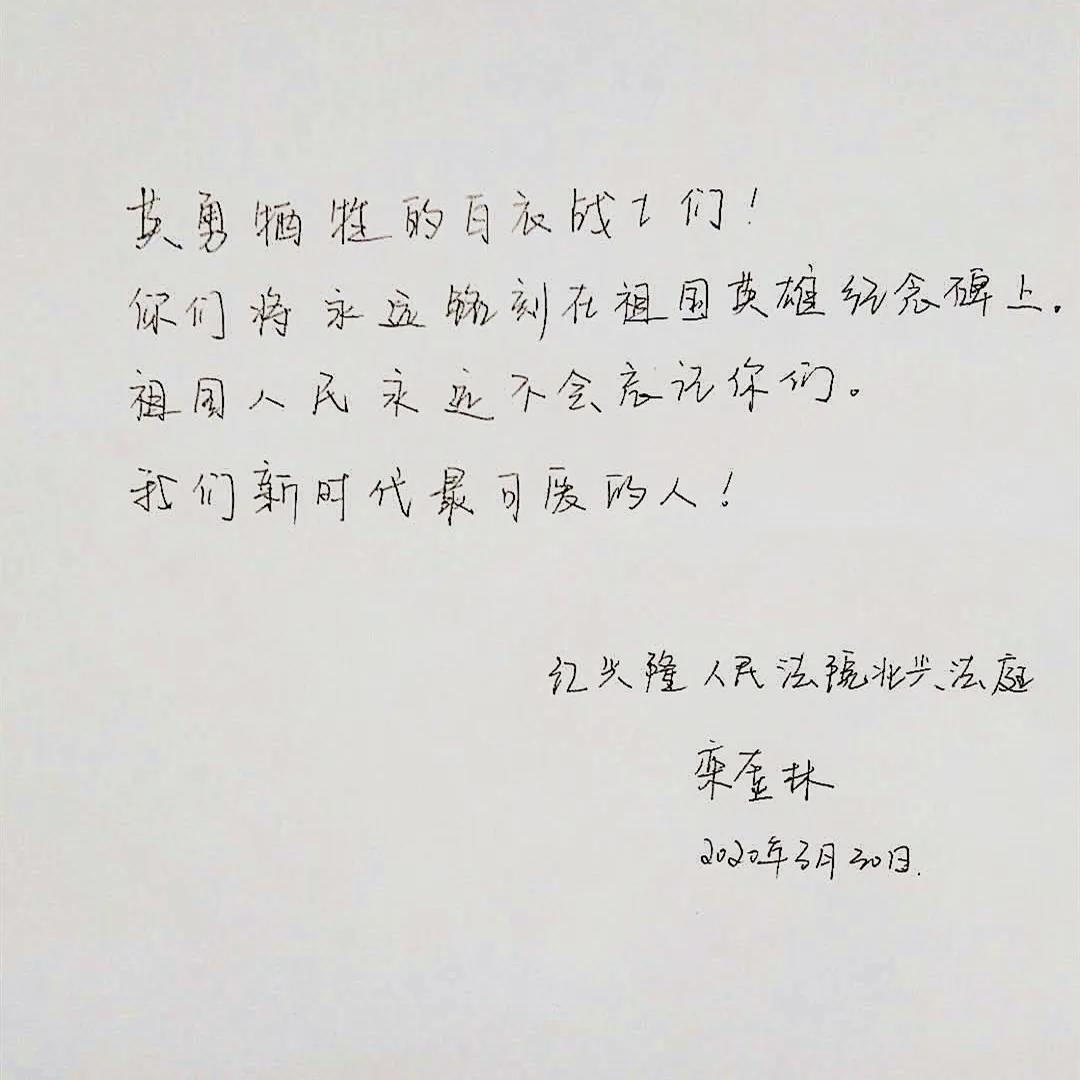 英勇牺牲的白衣战士们！
你们将永远铭刻在祖国英雄纪念碑上.
祖国人民永远不会忘记你们。
我们新时代最可爱的人！
红兴隆人民法院北兴法庭
栾奎林
2020年3月30日.